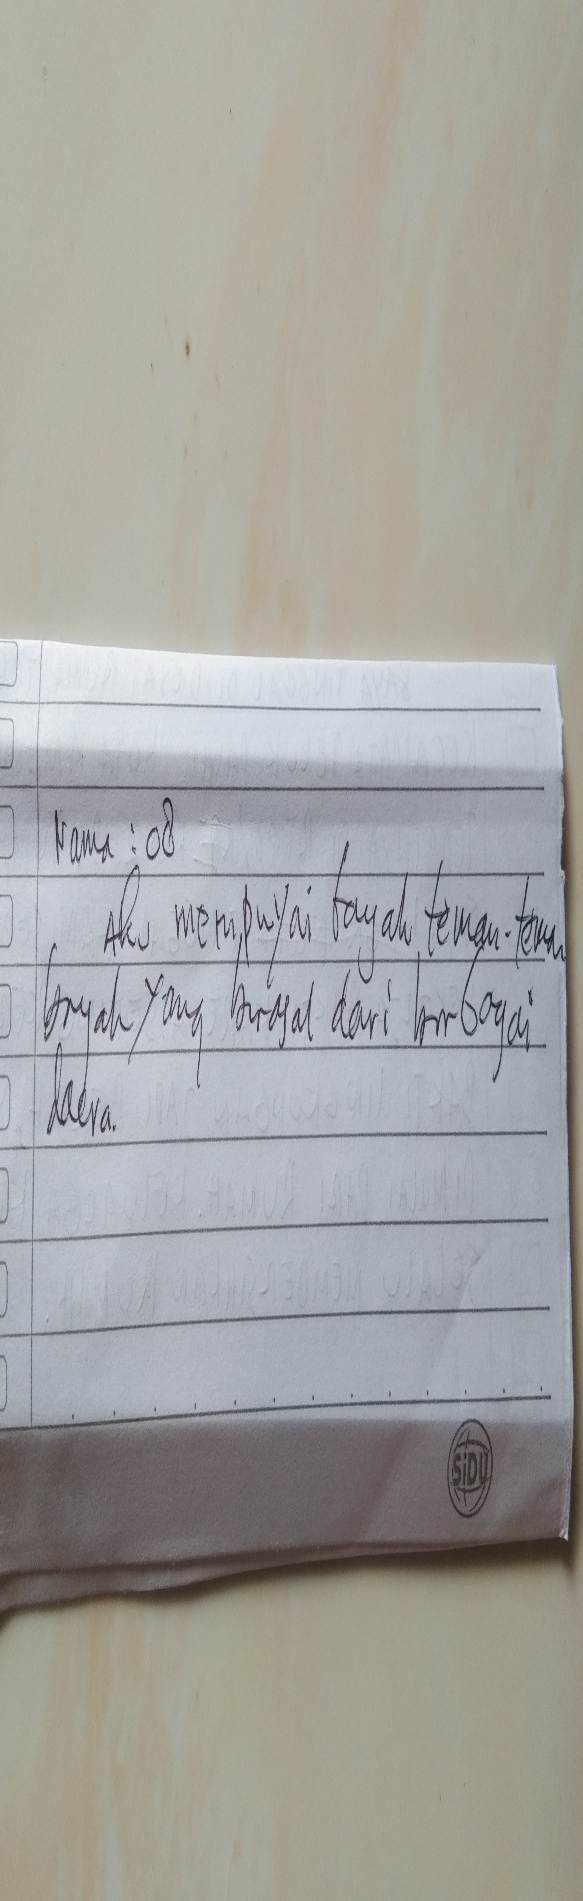 Nama : 08
Aku mempuyai bayah teman-teman
bnyah yang birasal dari birbagai
daera.
SiDU